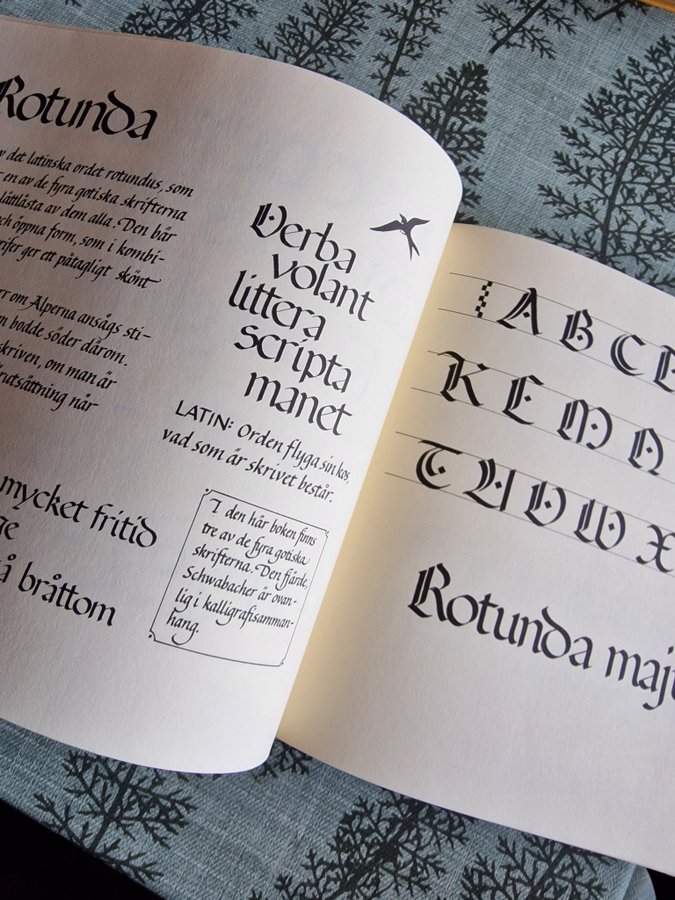 Rotunda
v det latinska ordet rotundus, som
r en av de fyra gotiska skrifterna
lättlästa av dem alla. Den bär
ch öppna form, som i kombi-
rifer ger ett påtagligt skönt
rr om Alperna ansågs sti-
m bodde söder därom.
skriven, om man är
natsättning när
mycket fritid
ge
å bråttom
Verba
volant
littera
scripta
manet
LATIN: Orden flyga sin kos,
vad som är skrivet består.
I den här boken finns
tre av de fyra gotiska
skrifterna. Den fjärde,
Schwabacher är ovan-
lig i kalligrafisamman-
hang.
A B C
K L M N
T U V W X
Rotunda maj